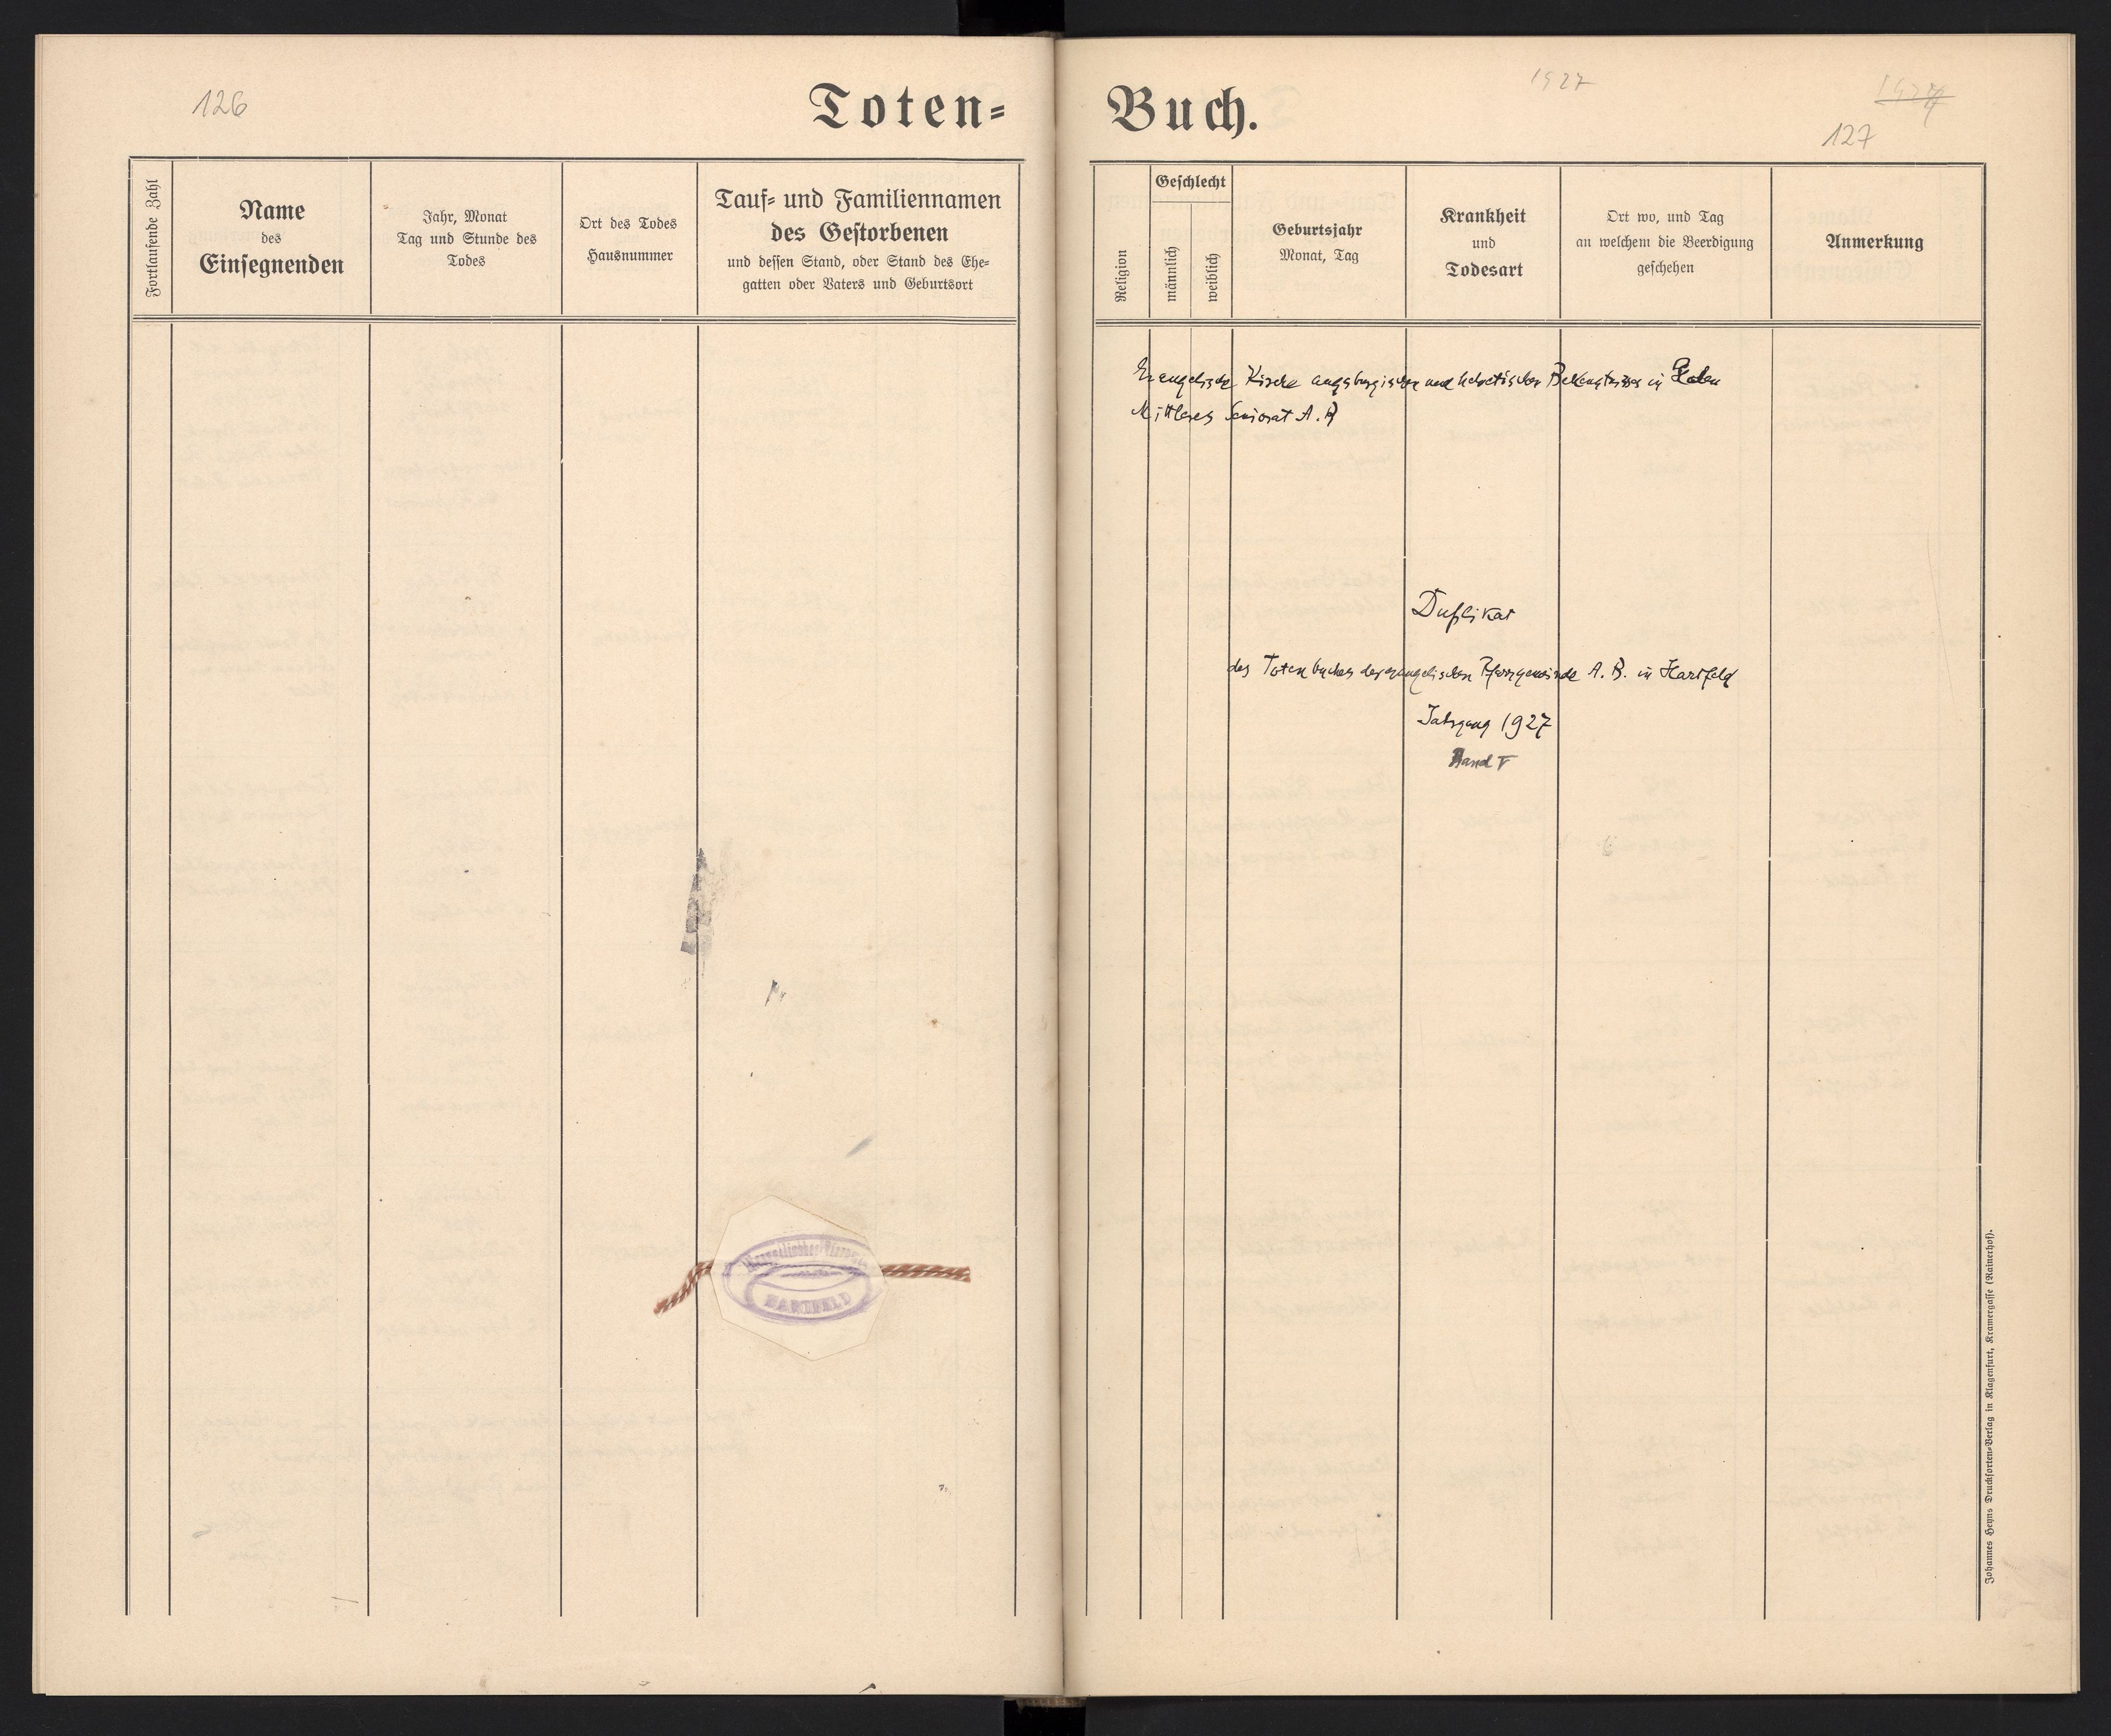 126
Toten=
Fortlaufende Zahl
Name
des
Einsegnenden
Jahr, Monat
Tag und Stunde des
Todes
Ort des Todes
Hausnummer
Tauf= und Familiennamen
des Gestorbenen
und dessen Stand, oder Stand des Ehe=
gatten oder Vaters und Geburtsort
HARTFELD
Buch.
1927
127
Religion
Geschlecht
männlich
weiblich
Geburtsjahr
Monat, Tag
Krankheit
und
Todesart
Ort wo, und Tag
an welchem die Beerdigung
geschehen
Anmerkung
Evangelische Kirche augsburgischen und helvetischen Bekenntnisses in Polen
Mittleres Seniorat A. B
Duplikat
des Totenbuches der evangelischen Pfarrgemeinde A. B. in Hartfeld
Jahrgang 1927
Band V
Johannes Heyns Drucksorten=Verlag in Klagenfurt, Kramergasse (Rainerhof).